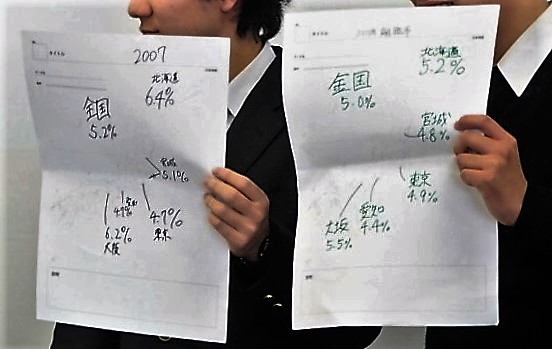 タイトル
2007
北海道
64%
全国
5.2%
宮城
5.1%
愛知
4.7%
東京
6.2%
大阪
タイトル
北海道
5.2%
全国
5.0%
宮城
4.8%
東京
4.9%
愛知
4.4%
大坂
5.5%